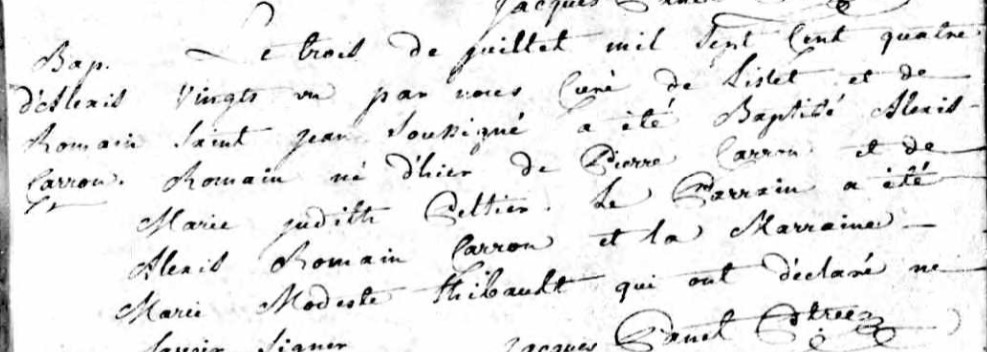 Jacques
Bap. Le trois de juillet mil sept Cent quatre
d'Alexis vingts un par nous Curé de Lislet et de
Romain Saint jean Soussigné a été Baptisé Alexis
Carron. Romain né d'hier de Pierre Carron et de
Marie judith Peltier. Le Parrain a été
Alexis Romain Carron et la Marraine
Marie Modeste Thibault qui ont déclaré ne
savoir signer Jacques Panet Ptre